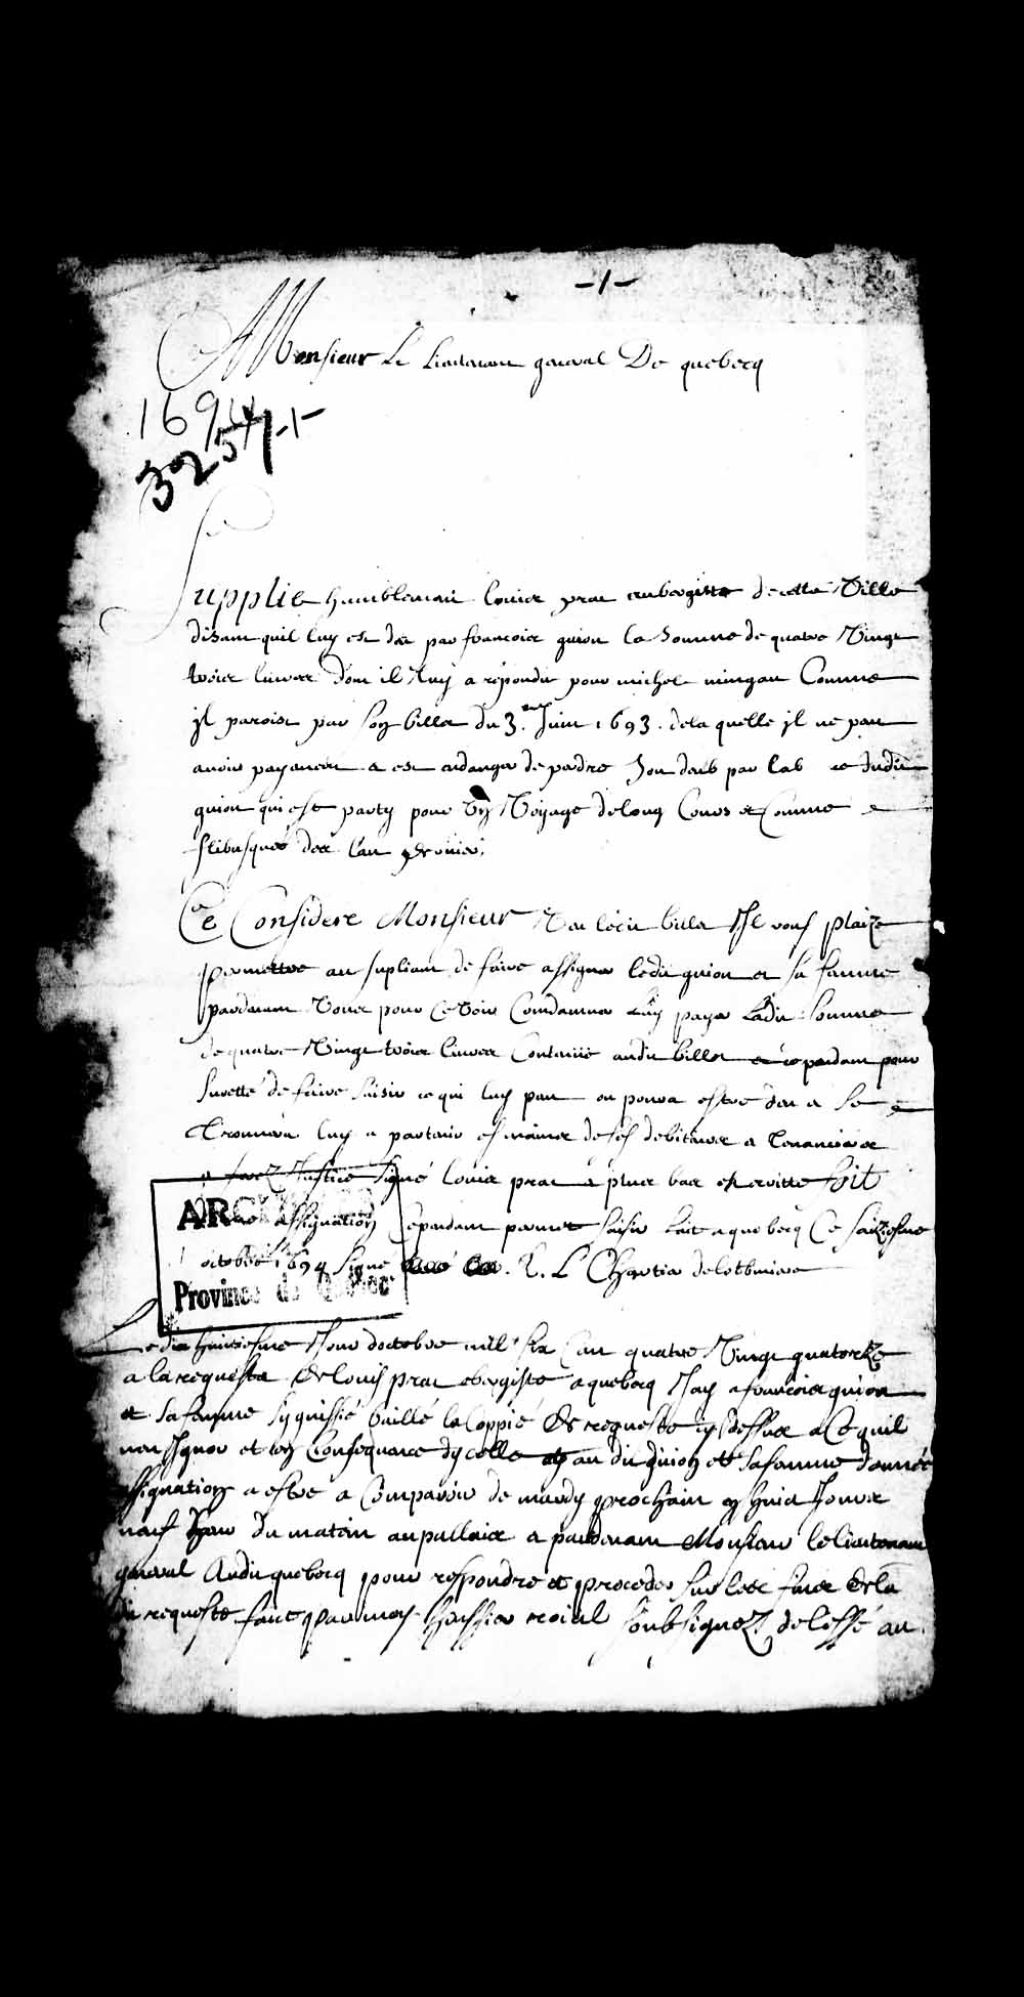 -1-
Monsieur Le Lieutenant general De quebecq
1694
3257-1-
Supplie humblement Louis prat aubergiste de cette Ville
disant quil luy est deu par francois guion la somme de quatre Vingt
trois livres dont il luy a repondu pour michel mingau Comme
jl paroist par son billet du 3.me Juin 1693. de la quelle jl ne peut
avoir payement & est en danger de perdre son deub par lab ce dudit
guion qui est party pour un Voyage de long Cours et Comme
flibusquer des l'an dernier.
Ce Considere Monsieur Veu ledit billet Il vous plaize
permettre au supliant de faire assigner ledit guion et sa femme
pardevant Vous pour ce Voir Condamner luy payer ladite somme
de quatre Vingt trois livres Contenue audit billet et cependant pour
suretté de faire saisir ce qui luy peut ou poura estre deu et se
trouvera luy apartenir es mains de ses debiteurs
et ferez Justice Signé Louis prat et plus bas est escritte soit
assignation cependant permet saisir fait a quebecq Ce saiziesme
octobre 1694 Signé R. L Chartier de lotbiniere
Le dix huitiesme Jour doctobre mil six Cent quatre Vingt quatorze
a la requeste De Louis prat obergiste a quebecq Jay a francois guion
et sa femme signiffié baillé la Coppié de requeste cy dessus a Ce quil
nen Ignor et en Consequance dycelle au dit guion et sa femme donné
assignation a estre a Comparoir de mardy prochain en huict Jours
neuf heur du matin au pallais a pardevant Monsieur le lieutenant
general Audit quebecq pour respondre et proceder sur les fins de la
dit requeste fait par moy huissier roial soubsignez delessé au
ARCHIVES
Province de Québec